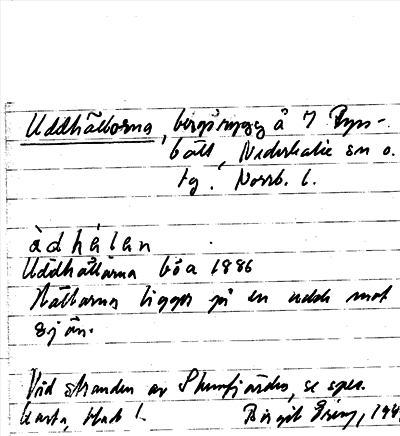 Uddhällorna, bergsrygg å 7 Rys-
bält, Nederkalix sn o.
tg. Norrb. l.
ådhälan
Uddhällarna böa 1886
Hällarna ligger på en udde mot
sjön.
Vid stranden av, se spec.
karta, blad 1. Birgit